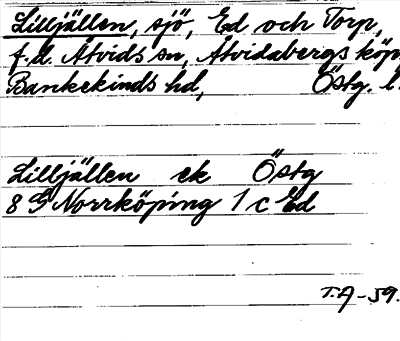 Lilljällen, sjö, Ed och Torp,
f.d. Åtvids sn, Åtvidabergs köp
Bankekinds hd, Östg. l.
Lilljällen ek Östg
8 G Norrköping 1 c Ed
T.A-59.